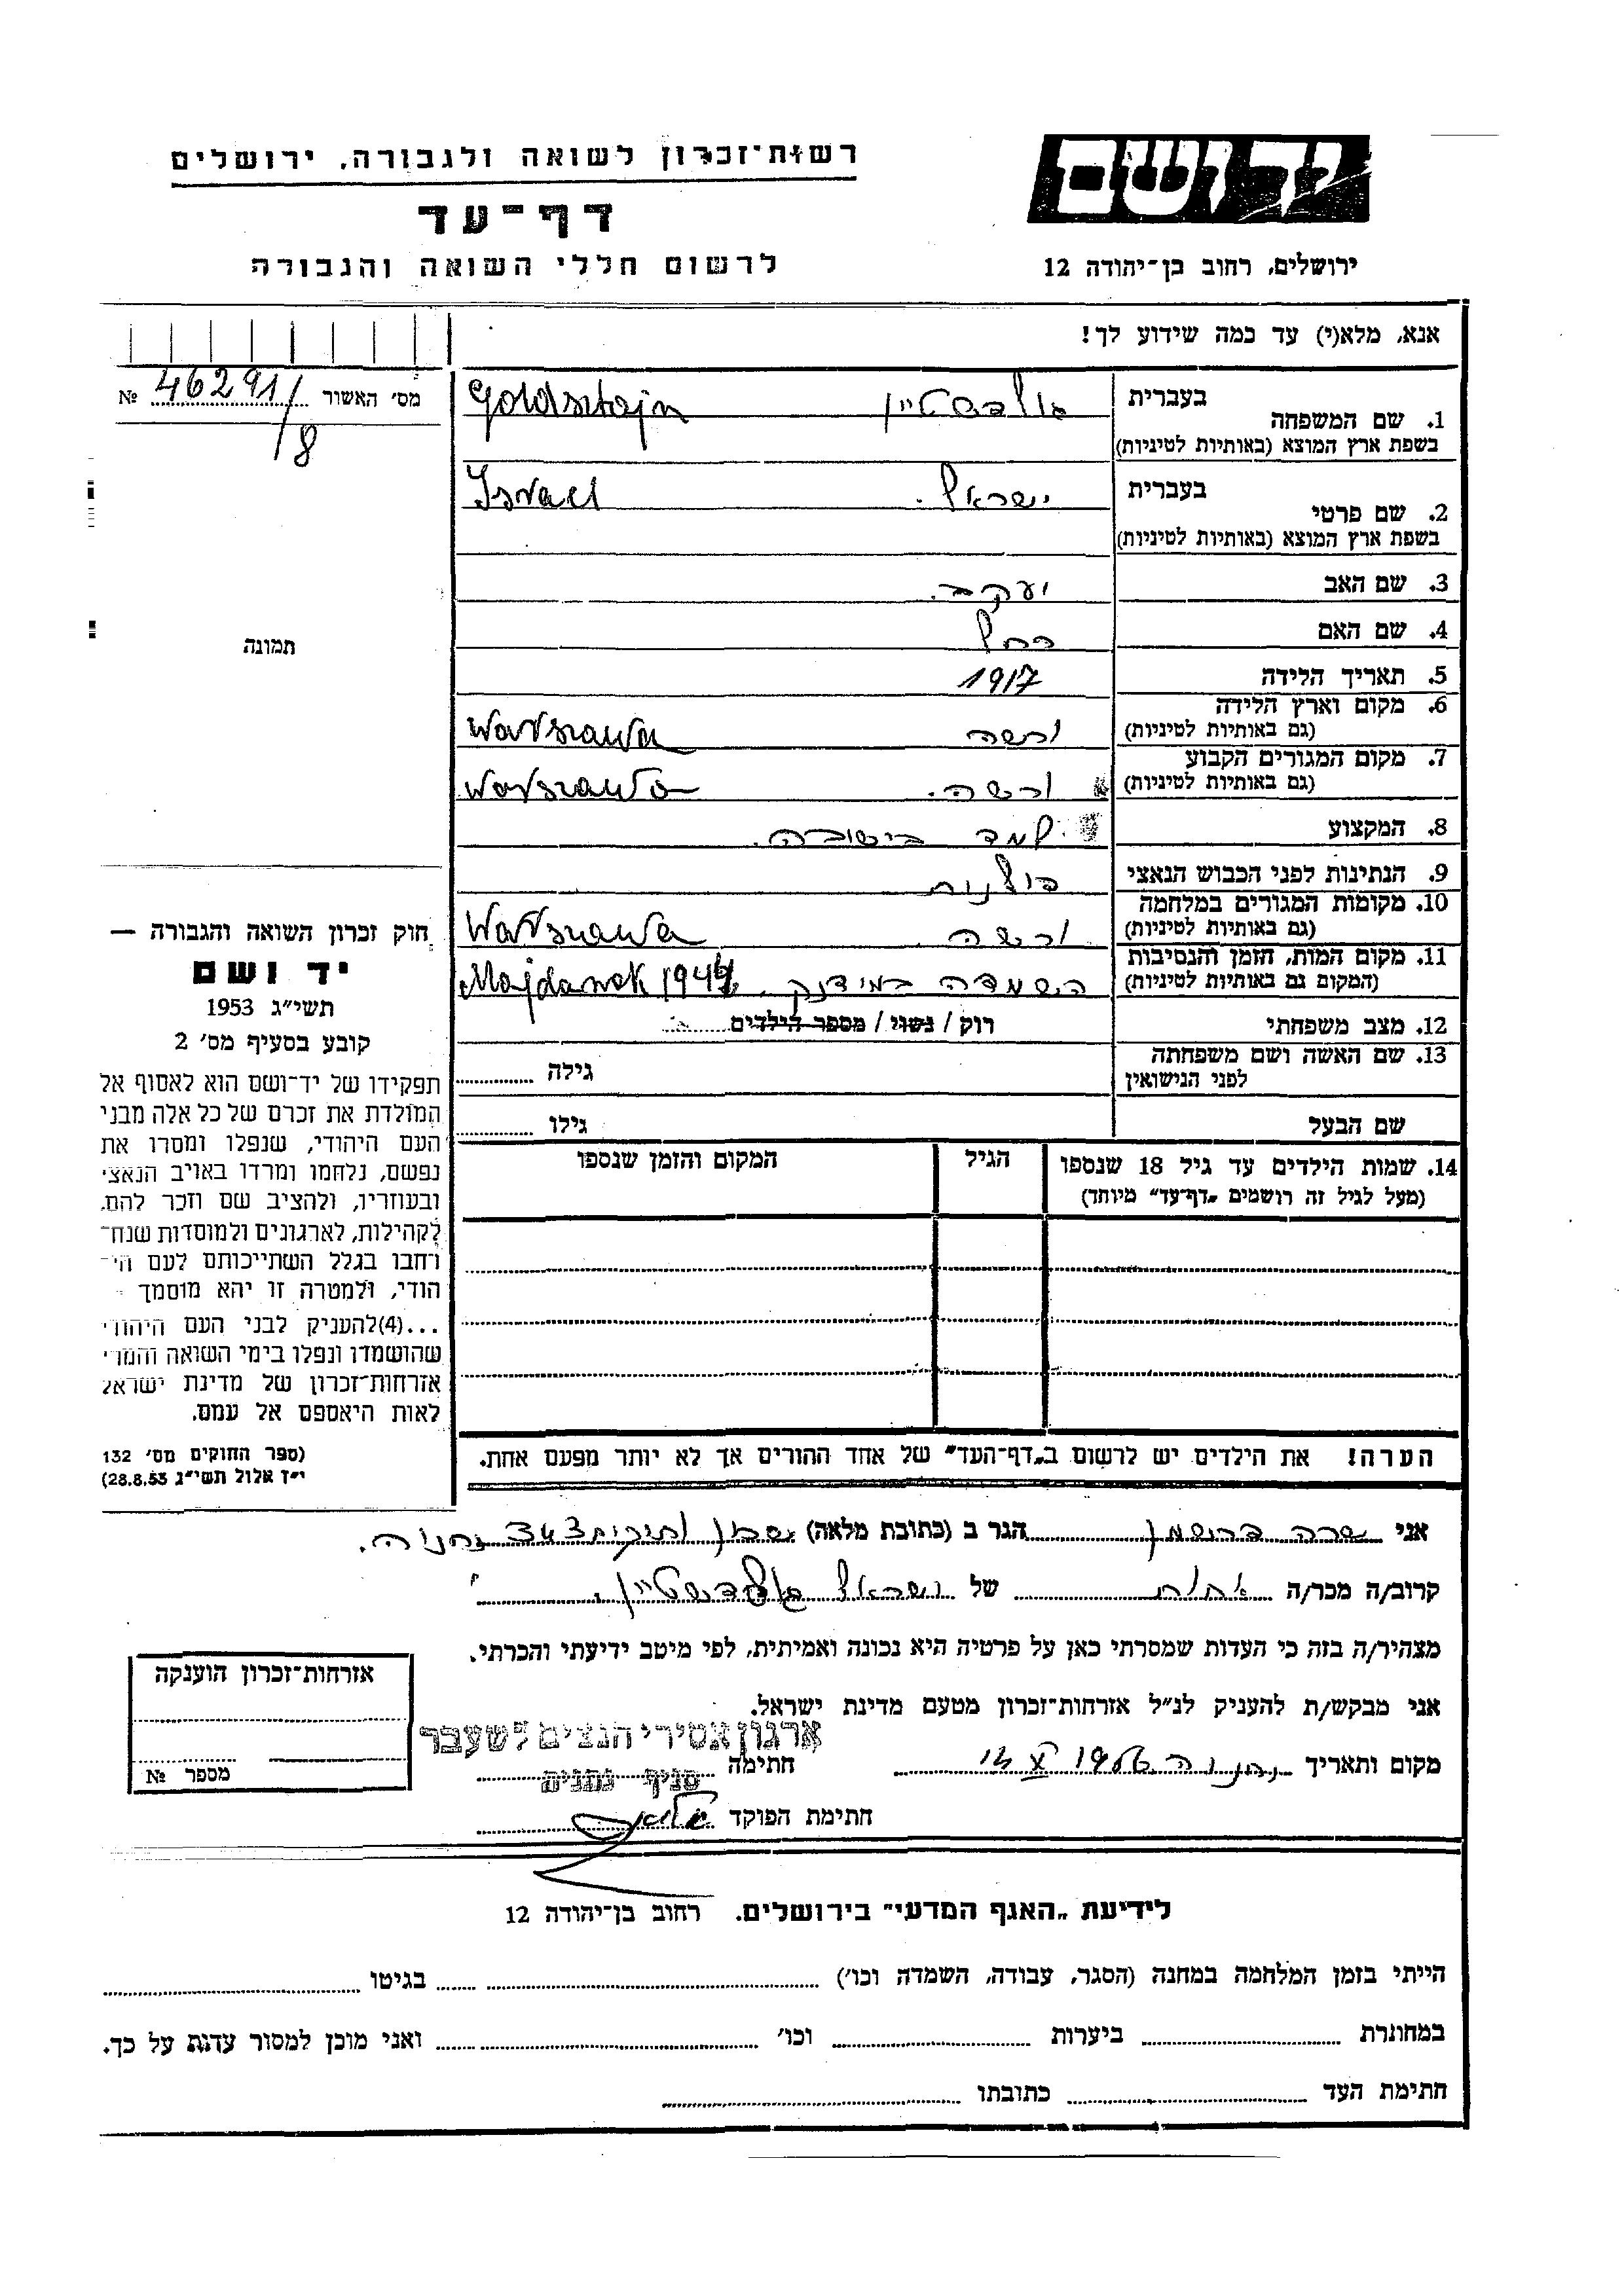 רשות־זכרון לשואה ולגבורה, ירושלים
דף־עד
לרשום חללי השואה והגבורה
יד ושם
ירושלים, רחוב בן־יהודה 12
אנא, מלא(י) עד כמה שידוע לך!
מס׳ האשור 46291/8 №
תמונה
1. שם המשפחה בעברית גולדשטיין Goldsztajn
בשפת ארץ המוצא (באותיות לטיניות)
2. שם פרטי בעברית ישראל. Israel
בשפת ארץ המוצא (באותיות לטיניות)
3. שם האב יעקב.
4. שם האם רחל
5. תאריך הלידה 1917
6. מקום וארץ הלידה ורשה Warszawa
(גם באותיות לטיניות)
7. מקום המגורים הקבוע ורשה. Warszawa
(גם באותיות לטיניות)
8. המקצוע למד בישיבה.
9. הנתינות לפני הכבוש הנאצי פולנית
10. מקומות המגורים במלחמה ורשה. Warszawa
(גם באותיות לטיניות)
11. מקום המות, הזמן והנסיבות הושמדה במידנק. Majdanek 1944
(המקום גם באותיות לטיניות)
12. מצב משפחתי רוק / נשוי / מספר הילדים
13. שם האשה ושם משפחתה גילה
לפני הנישואין
שם הבעל גילו
14. שמות הילדים עד גיל 18 שנספו הגיל המקום והזמן שנספו
(מעל לגיל זה רושמים „דף־עד” מיוחד)
הערה! את הילדים יש לרשום ב„דף־העד” של אחד ההורים אך לא יותר מפעם אחת.
חוק זכרון השואה והגבורה —
יד ושם
תשי״ג 1953
קובע בסעיף מס׳ 2
תפקידו של יד־ושם הוא לאסוף אל
המולדת את זכרם של כל אלה מבני
העם היהודי, שנפלו ומסרו את
נפשם, נלחמו ומרדו באויב הנאצי
ובעוזריו, ולהציב שם וזכר להם,
לקהילות, לארגונים ולמוסדות שנח־
רחבו בגלל השתייכותם לעם הי־
הודי, ולמטרה זו יהא מוסמך
...(4)להעניק לבני העם היהודי
שהושמדו ונפלו בימי השואה והמרי
אזרחות־זכרון של מדינת ישראל
לאות היאספם אל עמם.
(ספר החוקים מס׳ 132
י״ז אלול תשי״ג 28.8.53)
אני שרה הגר ב (כתובת מלאה) שכון נתניה.
קרוב/ה מכר/ה אחות של ישראל גולדשטיין.
מצהיר/ה בזה כי העדות שמסרתי כאן על פרטיה היא נכונה ואמיתית, לפי מיטב ידיעתי והכרתי.
אני מבקש/ת להעניק לנ״ל אזרחות־זכרון מטעם מדינת ישראל.
ארגון אסירי הנצים לשעבר
סניף נתניה
מקום ותאריך נתניה חתימה
חתימת הפוקד
אזרחות־זכרון הוענקה
מספר №
לידיעת „האגף המדעי” בירושלים. רחוב בן־יהודה 12
הייתי בזמן המלחמה במחנה (הסגר, עבודה, השמדה וכו׳) בגיטו
במחתרת ביערות וכו׳ ואני מוכן למסור עדות על כך.
חתימת העד כתובתו